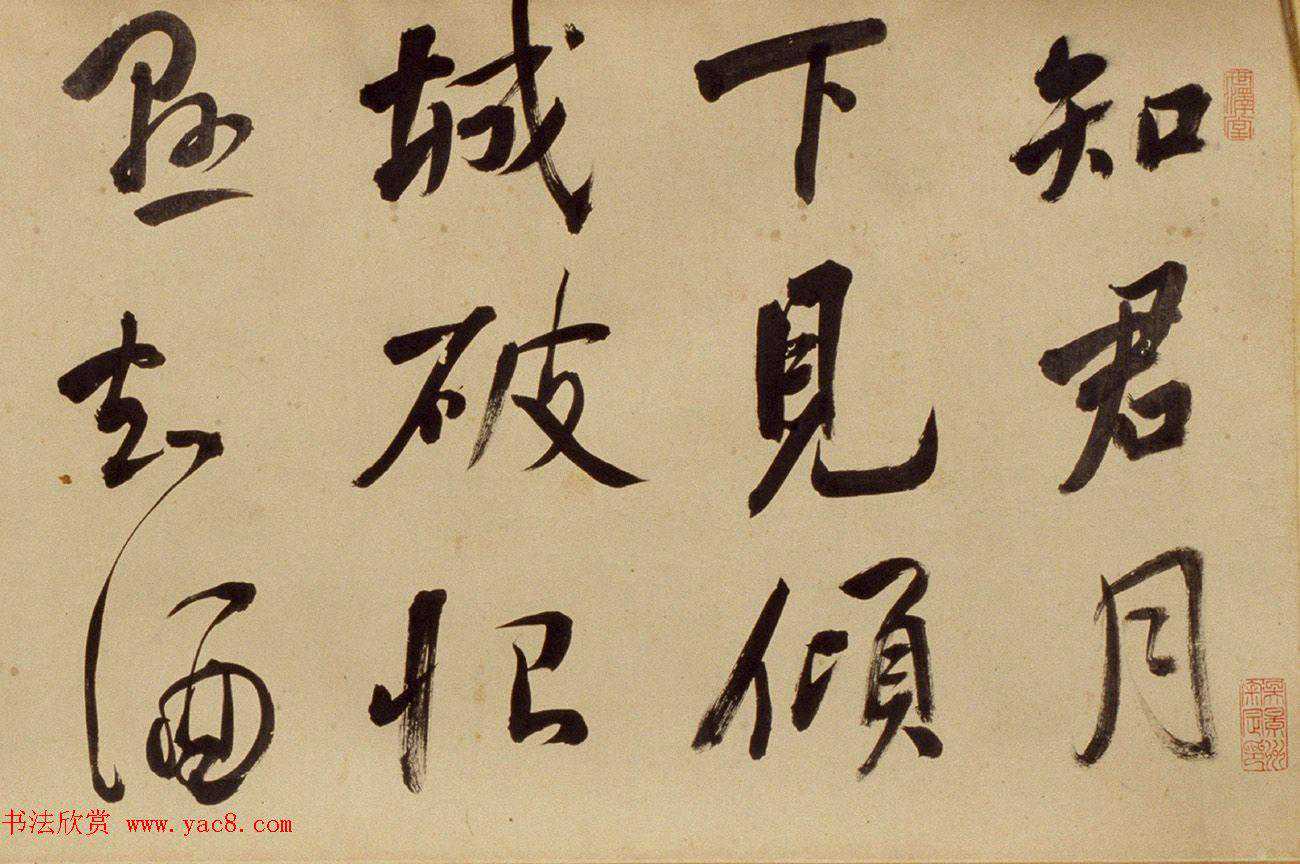 世澤堂
知君月
下見傾
城破恨
懸知酒
书法欣赏 www.yac8.com